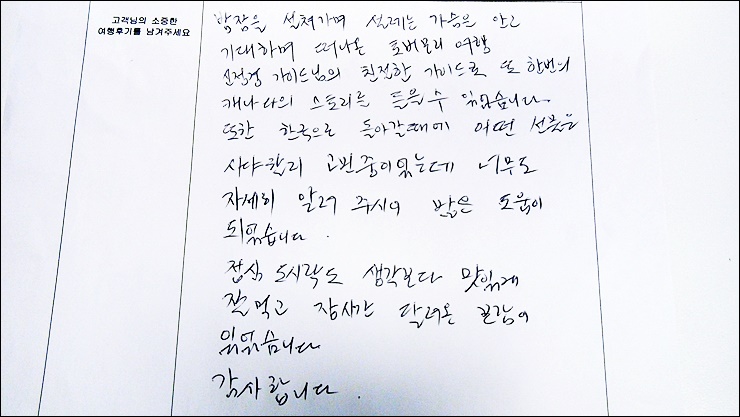 고객님의 소중한
여행후기를 남겨주세요
밤잠을 설쳐가며 설레는 가슴을 안고
기대하며 떠나온 토버모리 여행
가이드님의 친절한 가이드로 또 한번의
캐나다의 스토리를 들을 수 있었습니다.
또한 한국으로 돌아갈때에 어떤 선물을
사야할지 고민중이었는데 너무도
자세히 알려 주시어 많은 도움이
되었습니다.
점심 도시락도 생각보다 맛있게
잘 먹고 장시간 달려온 보람이
있었습니다
감사합니다.